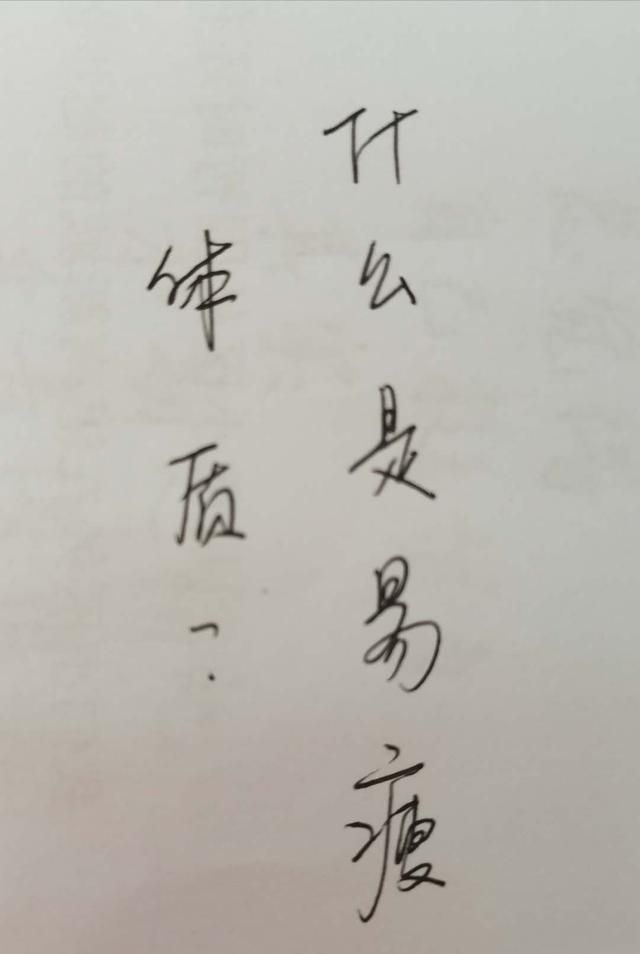 什么是易瘦
体质？